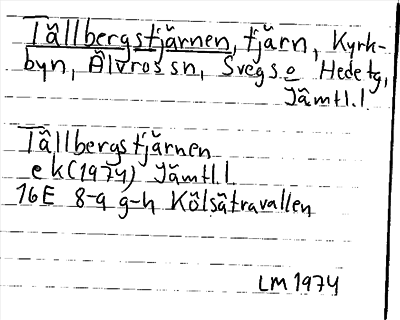 Tållbergstjärnen, tjärn, Kyrk-
byn, Älvros sn, Svegs o Hede tg,
Jämtl.l.
Tållbergstjärnen
ek (1974) Jämtl.l
16E 8-9 g-h Kölsätravallen
LM 1974